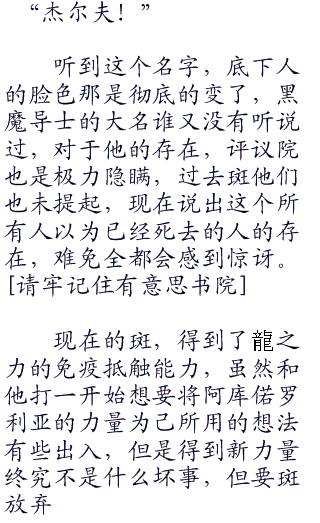 “杰尔夫！”
听到这个名字，底下人
的脸色那是彻底的变了，黑
魔导士的大名谁又没有听说
过，对于他的存在，评议院
也是极力隐瞒，过去斑他们
也未提起，现在说出这个所
有人以为已经死去的人的存
在，难免全都会感到惊讶。
[请牢记住有意思书院]
现在的斑，得到了龍之
力的免疫抵触能力，虽然和
他打一开始想要将阿库偌罗
利亚的力量为己所用的想法
有些出入，但是得到新力量
终究不是什么坏事，但要斑
放弃